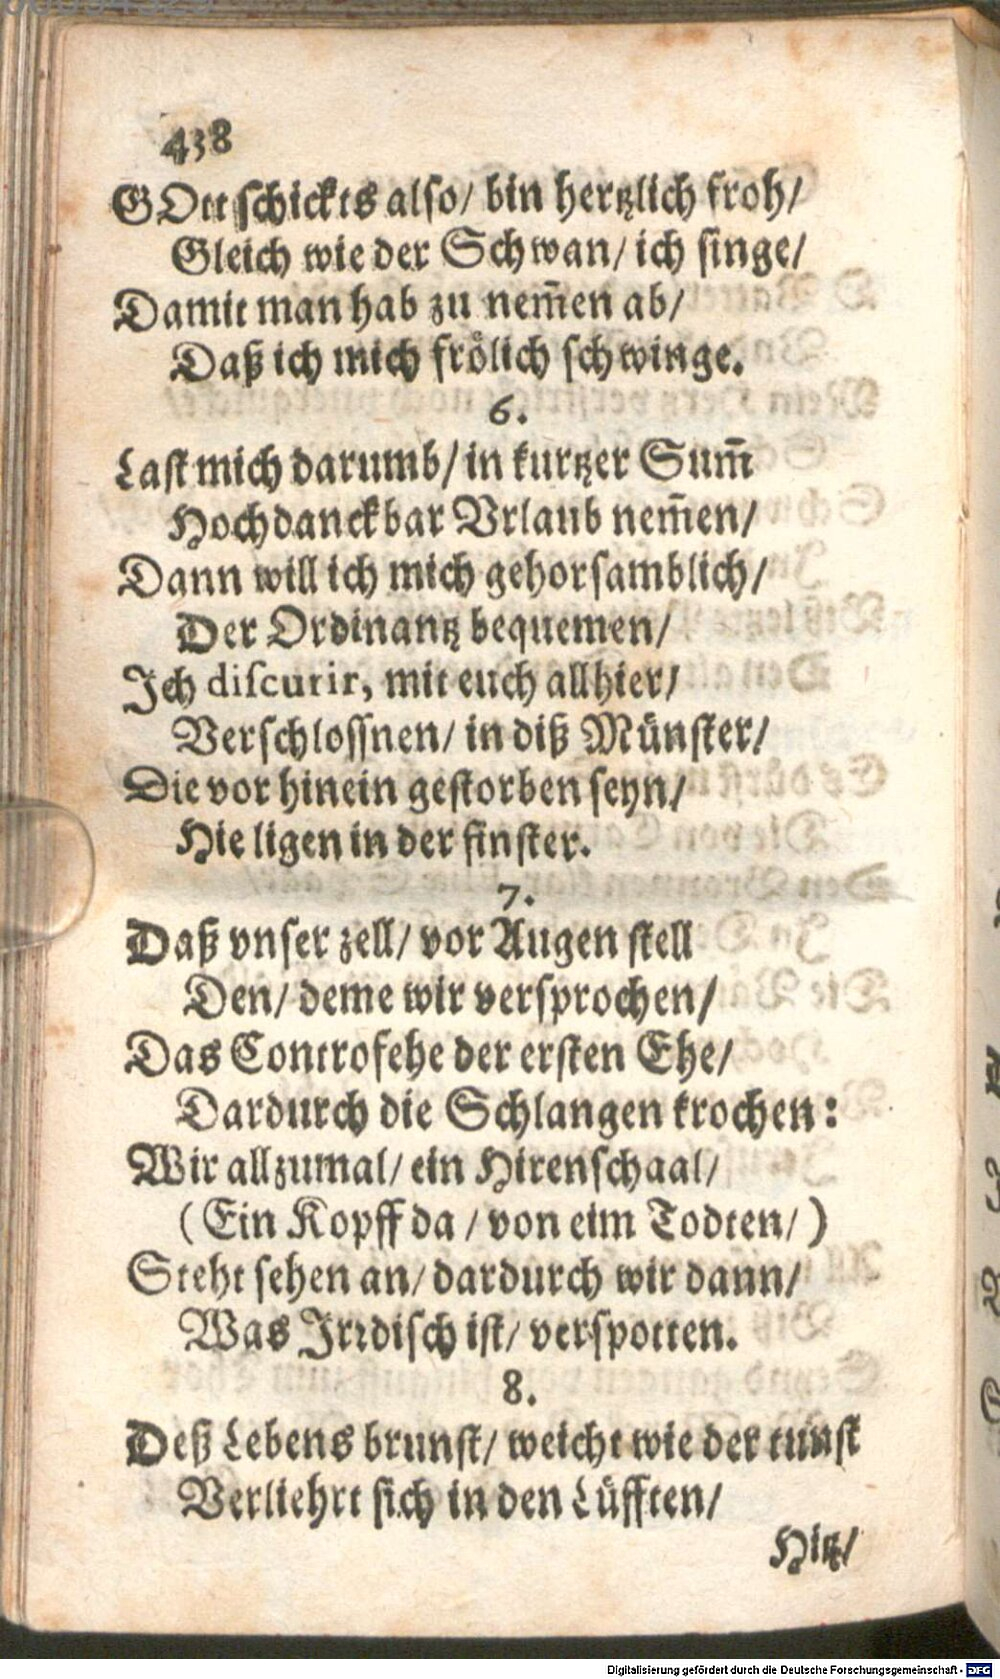 438
GOtt schickts also/ bin hertzlich froh/
Gleich wie der Schwan/ ich singe/
Damit man hab zu nem̃en ab/
Daß ich mich frölich schwinge.
6.
Last mich darumb/ in kurtzer Sum̃
Hochdanckbar Vrlaub nem̃en/
Dann will ich mich gehorsamblich/
Der Ordinantz bequemen/
Jch discurir, mit euch allhier/
Verschlossnen/ in diß Münster/
Die vor hinein gestorben seyn/
Hie ligen in der finster.
7.
Daß vnser zell/ vor Augen stell
Den/ deme wir versprochen/
Das Controfehe der ersten Ehe/
Dardurch die Schlangen krochen:
Wir allzumal/ ein Hirenschaal/
(Ein Kopff da / von eim Todten/)
Steht sehen an/ dardurch wir dann/
Was Jrꝛdisch ist/ verspotten.
8.
Deß Lebens brunst/ weicht wie der tunst
Verliehrt sich in den Lüfften/
Hitz/
Digitalisierung gefördert durch die Deutsche Forschungsgemeinschaft - DFG